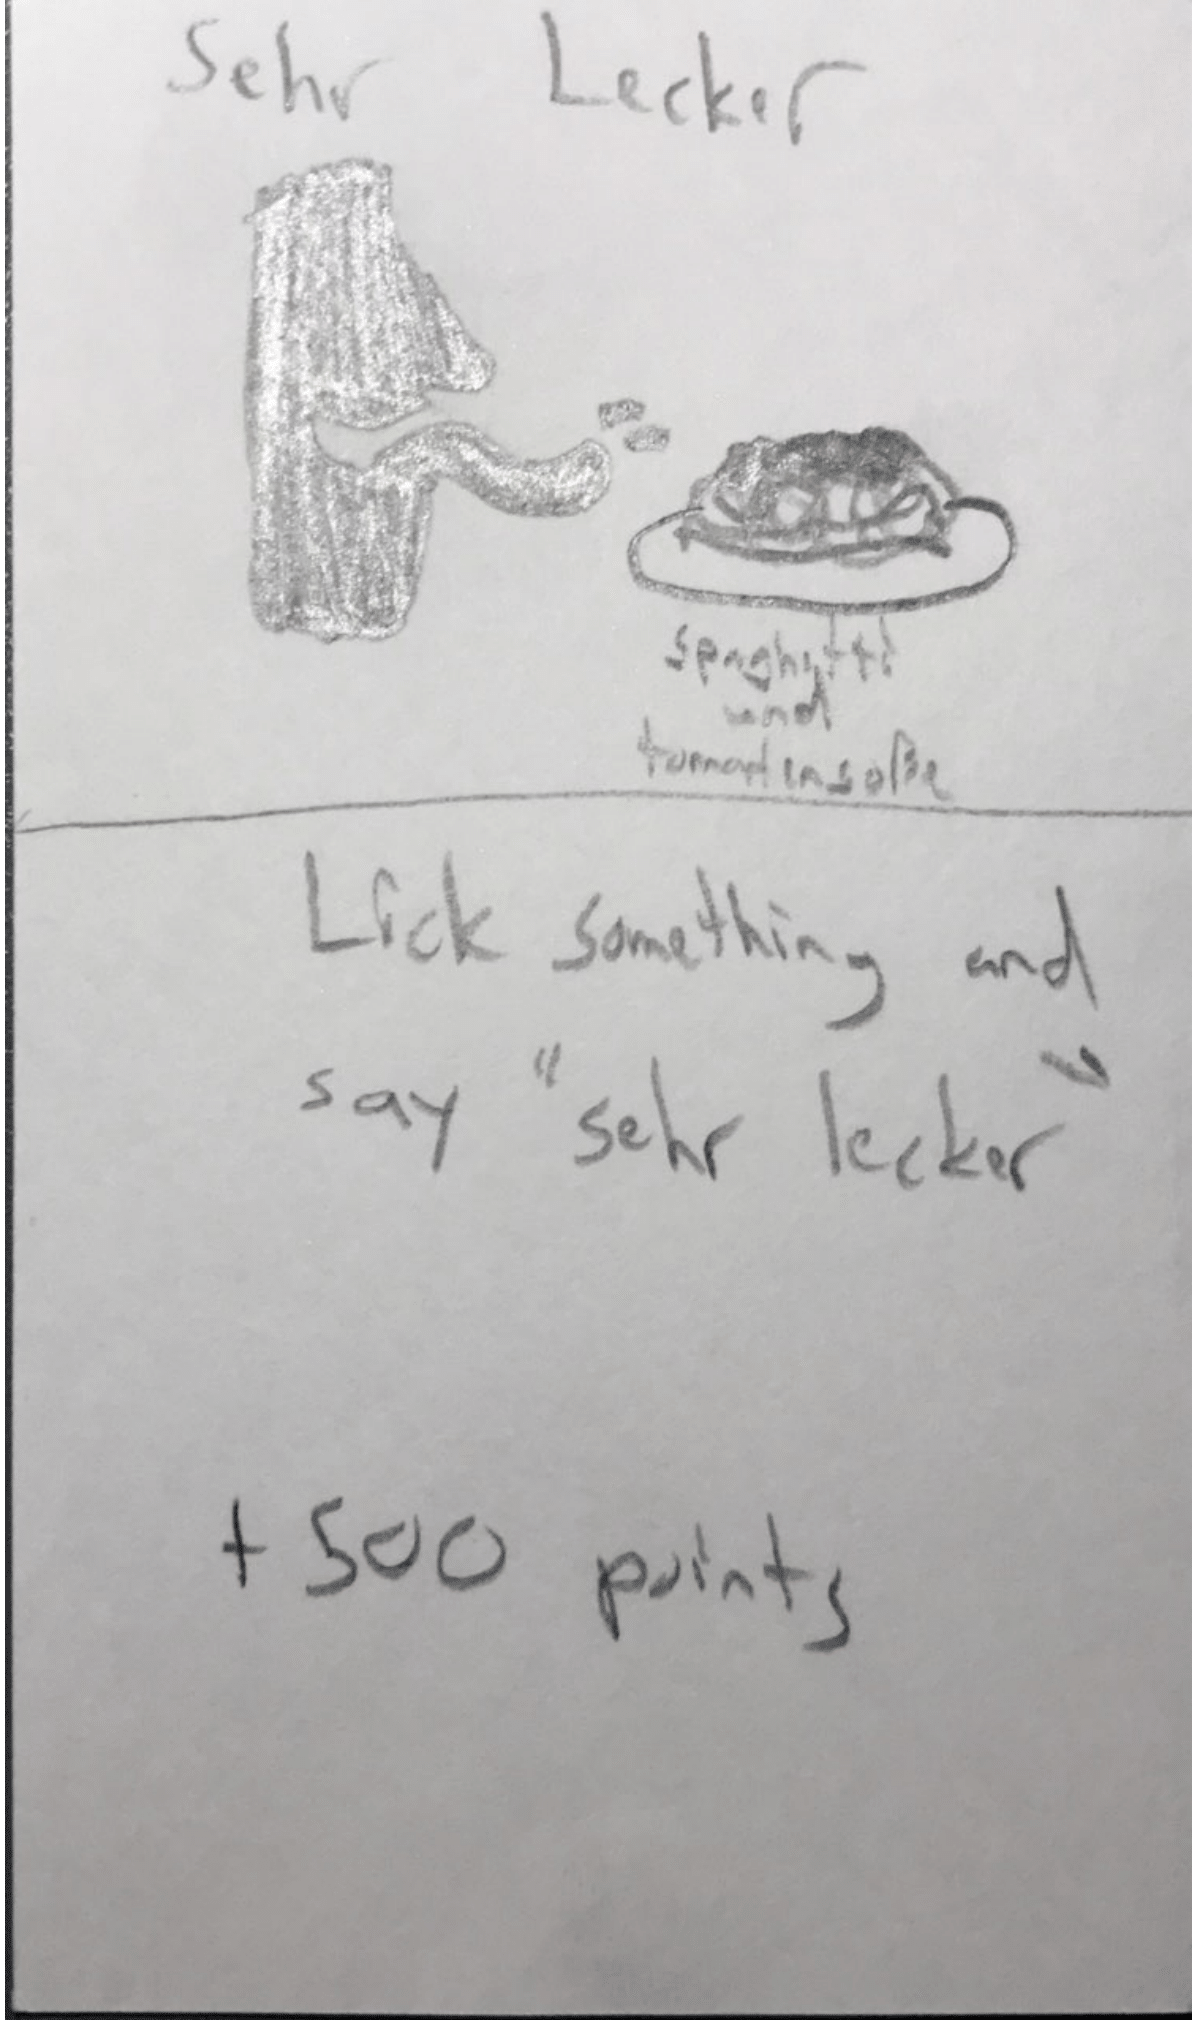 Sehr Lecker
spaghitti
und
tomatinsoße
Lick something and
say "sehr lecker"
+500 points